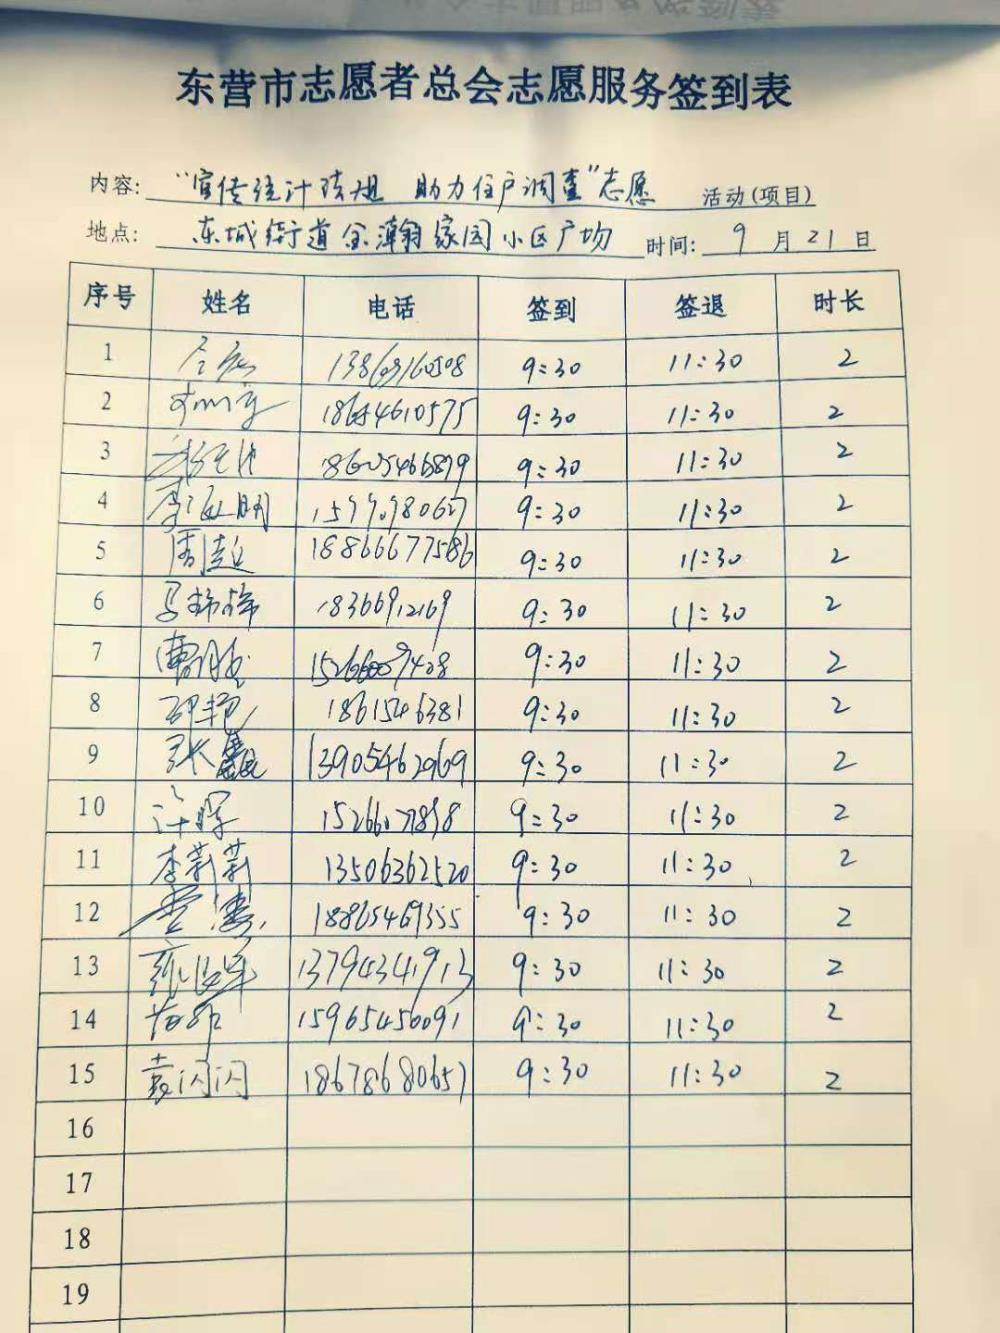 东营市志愿者总会志愿服务签到表
内容: "宣传统计法规 助力住户调查"志愿 活动(项目)
地点: 东城街道金瀚家园小区广场 时间: 9 月 21 日
序号 姓名 电话 签到 签退 时长
1 9:30 11:30 2
2 18654610575 9:30 11:30 2
3 18605466879 9:30 11:30 2
4 9:30 11:30 2
5 周超 18866677586 9:30 11:30 2
6 9:30 11:30 2
7 15266009428 9:30 11:30 2
8 邵艳 9:30 11:30 2
9 张 13905462969 9:30 11:30 2
10 许晖 9:30 11:30 2
11 李莉莉 13506362520 9:30 11:30 2
12 18865469355 9:30 11:30 2
13 13794341913 9:30 11:30 2
14 15965456091 9:30 11:30 2
15 袁闪闪 18678680657 9:30 11:30 2
16
17
18
19